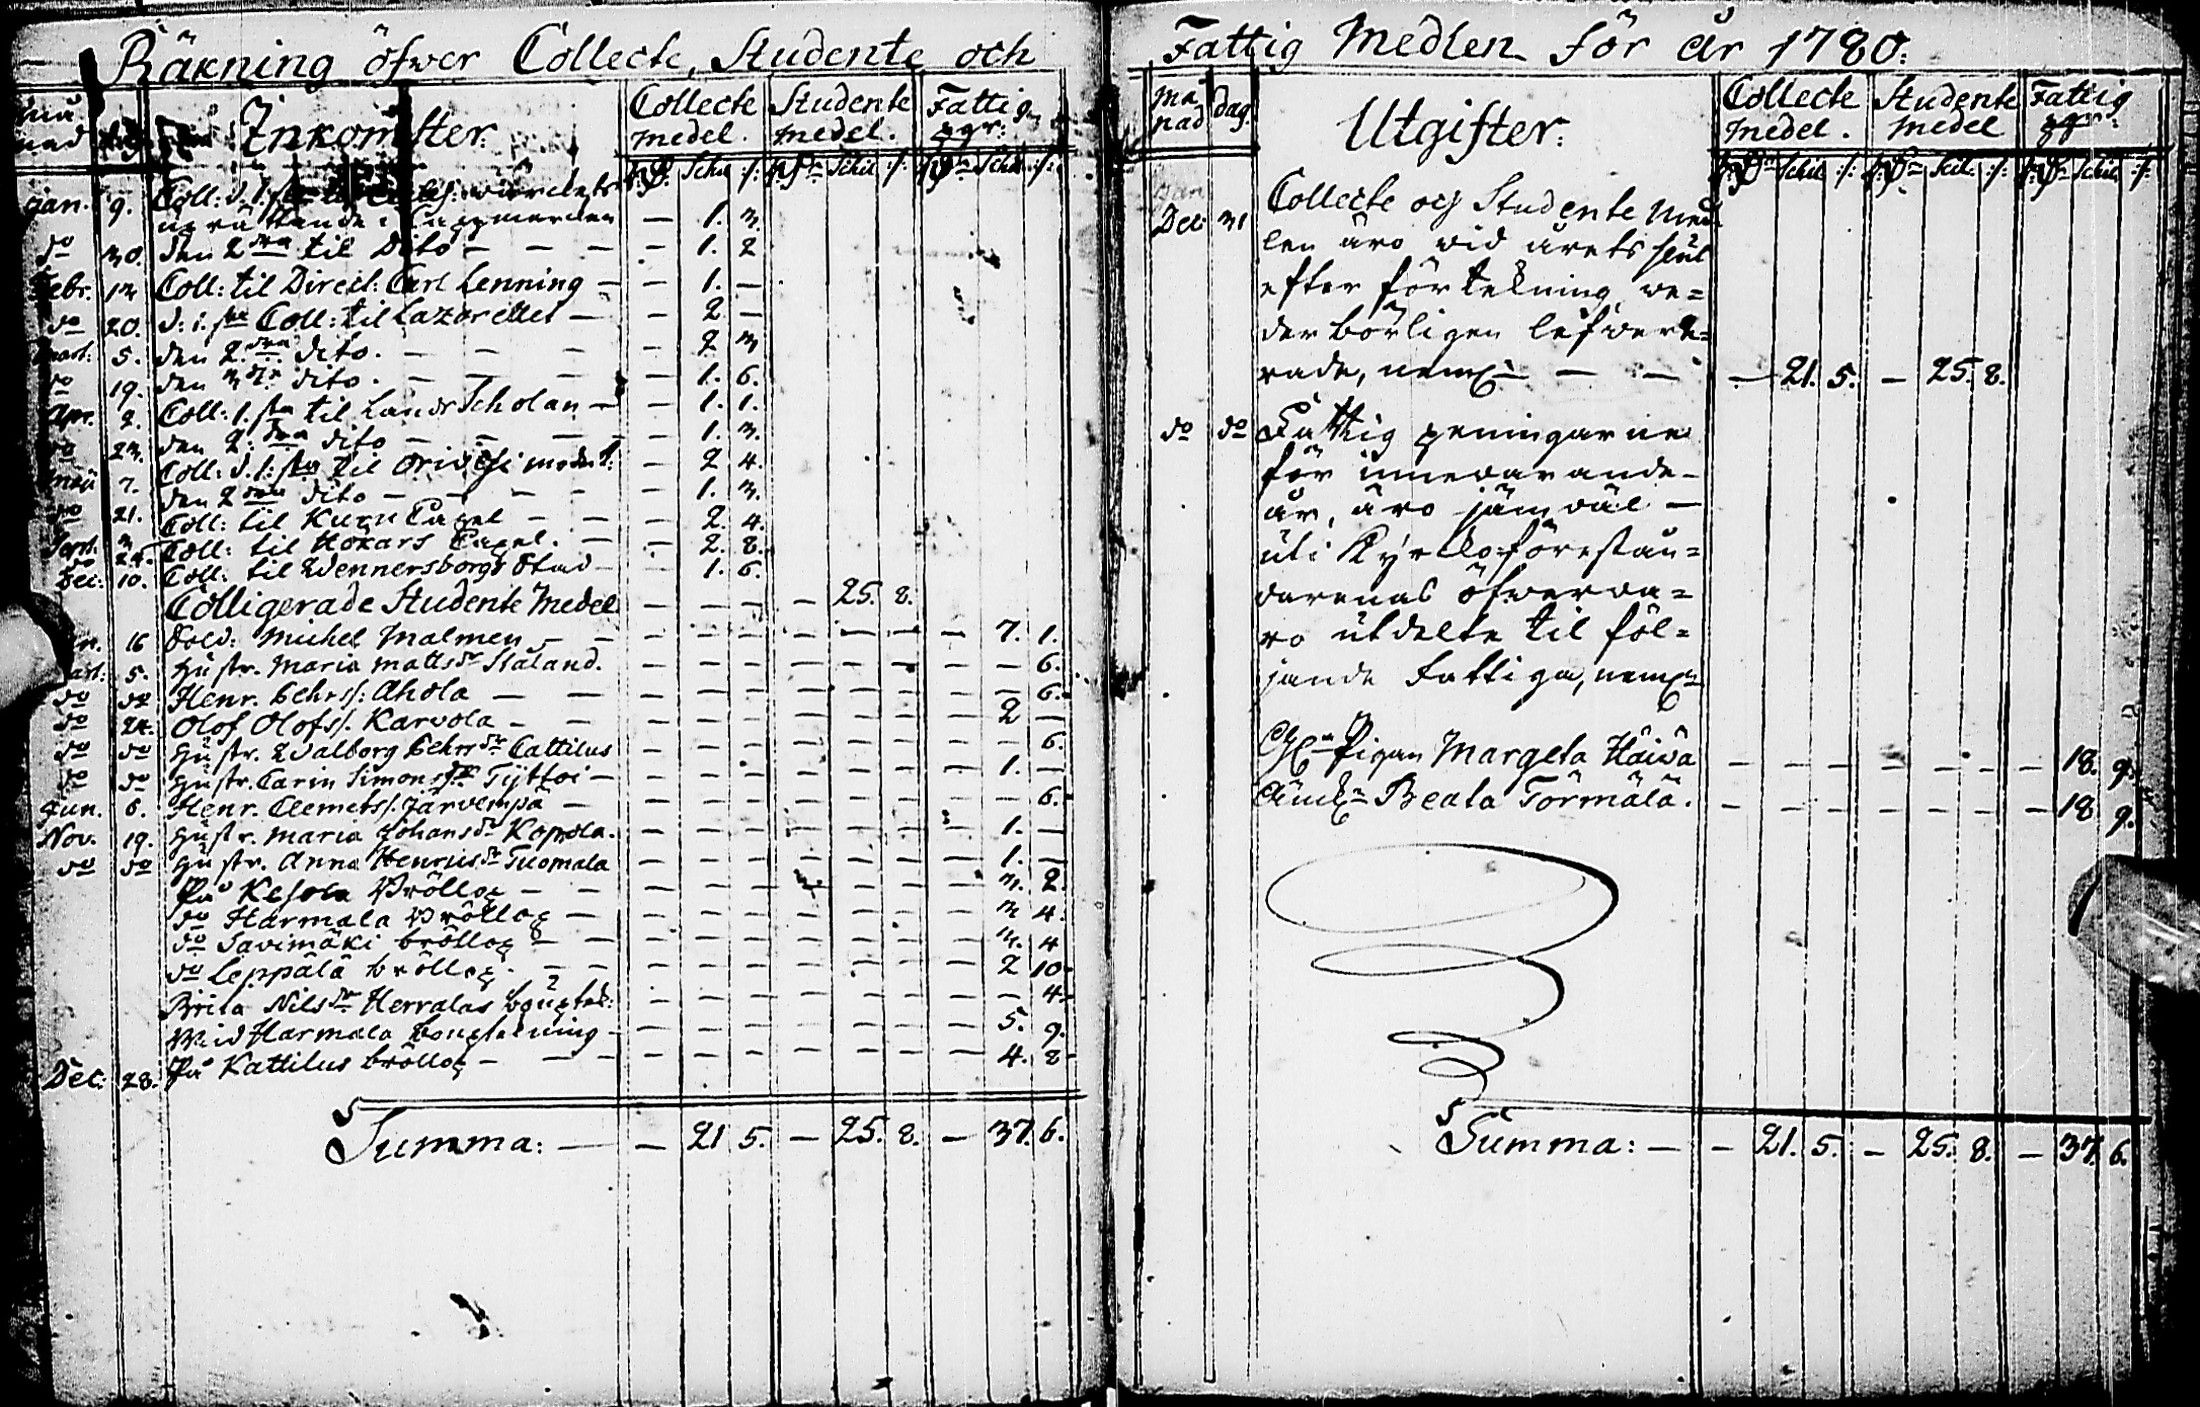 Räkning öfwer Collecte, Studente och
Månad dag Inkomster Collecte medel. Studente medel. Fattig pgr:
Rd Schil /: Rd Schil /: Rd Schil /:
Jan. 9. Coll: d. 1.sta
upråttande i Lappmarcken — 1. 3.
do 30. den 2dra til Dito — — 1. 2
Febr. 13 Coll: til Direct: Carl Lenning — — 1. —
do 20. d: 1.sta Coll: til Lazarettet — — 2 —
Mart: 5. den 2.dra dito. — — 2 3
do 19. den 3die dito. — — 1. 6.
Apr. 2. Coll: 1.sta til Lands Scholan — — 1. 1.
do 23. den 2.dra dito — — 1. 3.
Maji 7. Coll: d. 1:sta til Orivesi — 2 4.
do 21. den 2dra dito — — 1. 3.
Coll: til Kuru Capel — — 2. 4.
24. Coll: til Kökars Capel. — — 2. 8.
Dec: 10. Coll: til Wennersborgs Stad — — 1. 6.
Colligerade Studente Medel — — — — 25. 8.
16 Sold: Michel Malmen — — — 7. 1.
Mart: 5. Hustr. Maria Mattsdr Ståland. — — — 6.
do do Henr. Eehrss: Ahola — — — 6.
do 24. Olof Olofss. Karvola — — — 2 —
do do Hustr. Walborg Eehrsdr Cattilus — — — 6.
do do Hustr. Carin Simonsdr Tyttoi — — — 1. —
Jun. 6. Henr. Clemetss. Järvempä — — — 6.
Nov. 19. Hustr. Maria Johansdr Koppola. — — — 1. —
do do Hustr. Anna Henricsdr Tuomala — — — 1. —
På Kesola Bröllop — — — 3. 2.
do Harmala Bröllop — — — 3 4.
do Savimäki bröllop — — — 3. 4
do Leppälä bröllop. — — — 2 10.
Brita Nilsdr Herralas — — — 4.
Wid Harmala — — — 5. 9.
Dec: 28. På Kattilus bröllop — — — 4. 8
Summa: — — 21 5. — 25. 8. — 37. 6.
Fattig Medlen för År 1780:
Månad dag. Utgifter: Collecte medel. Studente medel Fattig pgr:
Rd Schil /: Rd Scil: /: Rd Schil /:
Dec: 31 Collecte och Studente Med
len äro wid årets slut
efter förtekning, we=
derbörligen lefwere=
rade, neml: — — — 21. 5. — 25. 8.
do do Fattig peningarne
för innewarande
år, äro jämwäl —
uti Kyrkoförestån=
darenas öfwerwa=
ro utdelte til föl=
jande Fattiga, neml:
Pigan Margeta Häivä — — — 18. 9.
Änk: Beata Törmälä. — — — 18 9.
Summa: — — 21. 5. — 25. 8. — 37. 6.